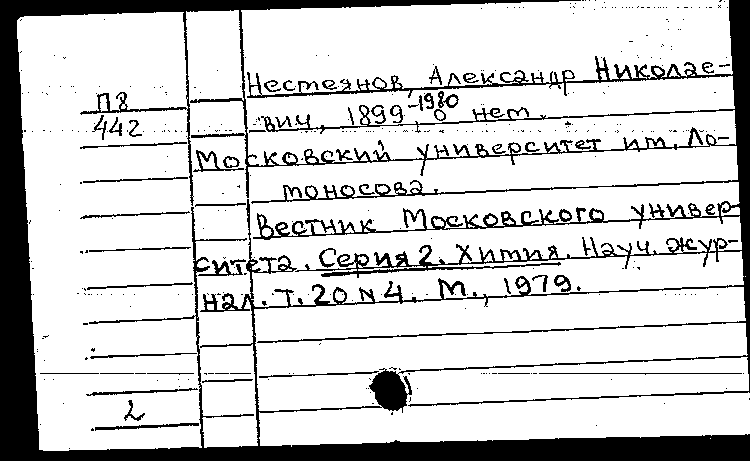 Несмеянов, Александр Николае-
П8
442
вич, 1899-1980, о нем.
Московский университет им. Ло-
моносова.
Вестник Московского универ-
ситета. Серия 2. Химия. Науч. жур-
нал. Т. 20 N 4. М., 1979.
2